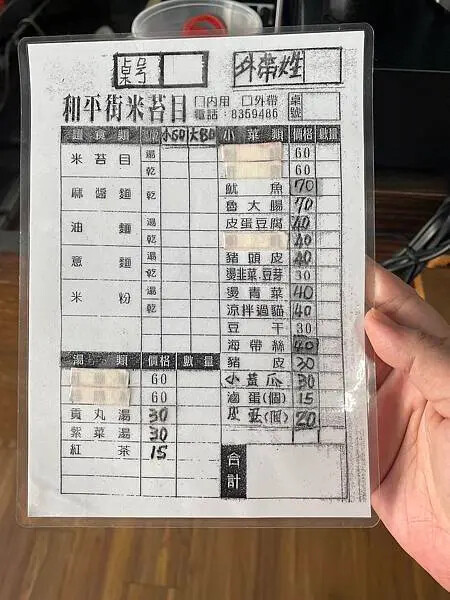 桌號
外帶姓
和平街米苔目 □內用 □外帶 桌號
電話:8359486
麵食類 小60 大80
米苔目 湯 乾
麻醬麵
油麵 湯 乾
意麵 湯 乾
米粉 湯 乾
湯類 價格 數量
60
60
貢丸湯 30
紫菜湯 30
紅茶 15
小菜類 價格 數量
60
60
魷魚 70
魯大腸 70
皮蛋豆腐 40
40
豬頭皮 40
燙韭菜.豆芽 30
燙青菜 40
涼拌過貓 40
豆干 30
海帶絲 40
豬皮 30
小黃瓜 30
滷蛋(個) 15
皮蛋(個) 20
合計